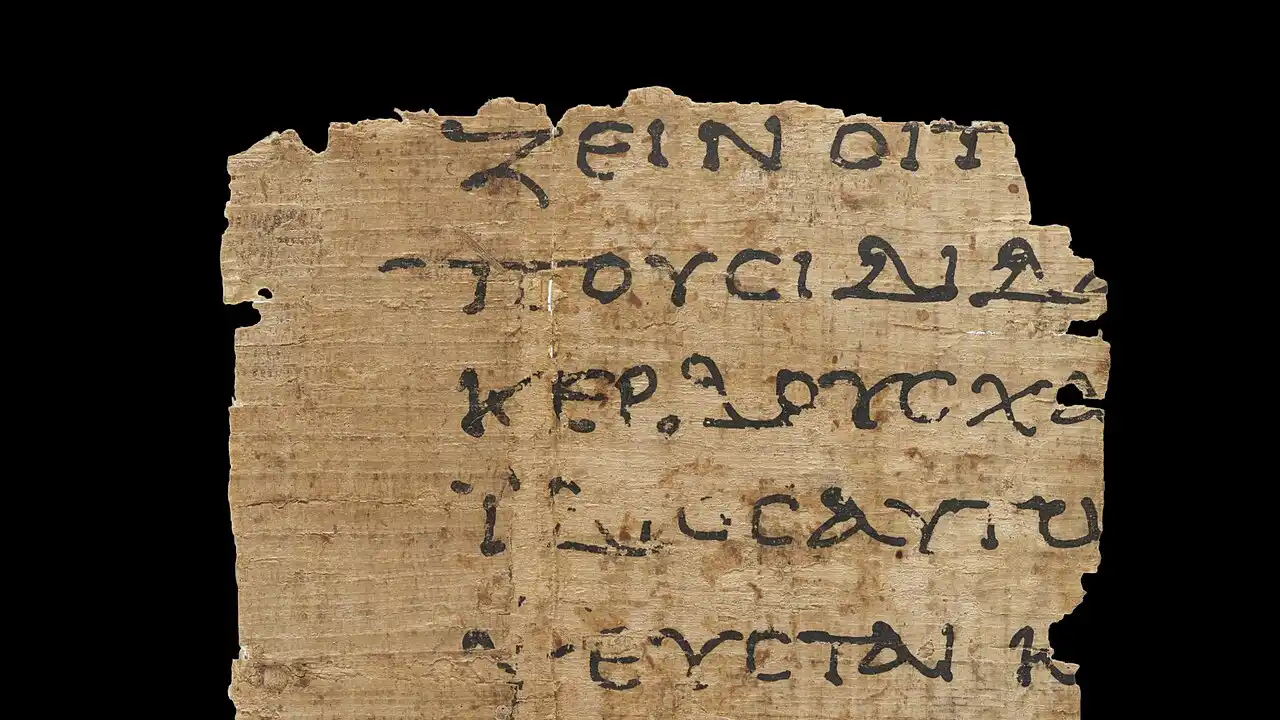 ΖΕΙΝ ΟΙΤ
ΠΟΥϹΙ ΔΙΔΑ
ΚΕΡΔΟΥϹ ΧΑ
ΪΔΙΟϹ ΑΥΤΩ
ΨΕΥϹΤΑΙ Κ